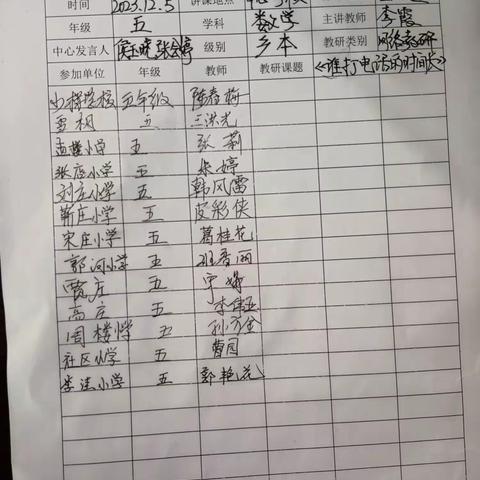 时间 2023.12.5 讲课地点
年级 五 学科 数学 主讲教师 李霞
中心发言人 张会婷 级别 乡本 教研类别 网络教研
参加单位 年级 教师 教研课题 《谁打电话的时间长》
五年级 陈春梅
五 王洪光
孟楼小学 五 张莉
张店小学 五 朱婷
刘庄小学 五 韩风雷
靳庄小学 五 皮彩侠
宋庄小学 五 葛桂花
郭河小学 五 班香丽
贾庄 五
高庄 五 李伟亚
周楼小学 五
社区小学 五 曹园
李洼小学 五 郭艳花